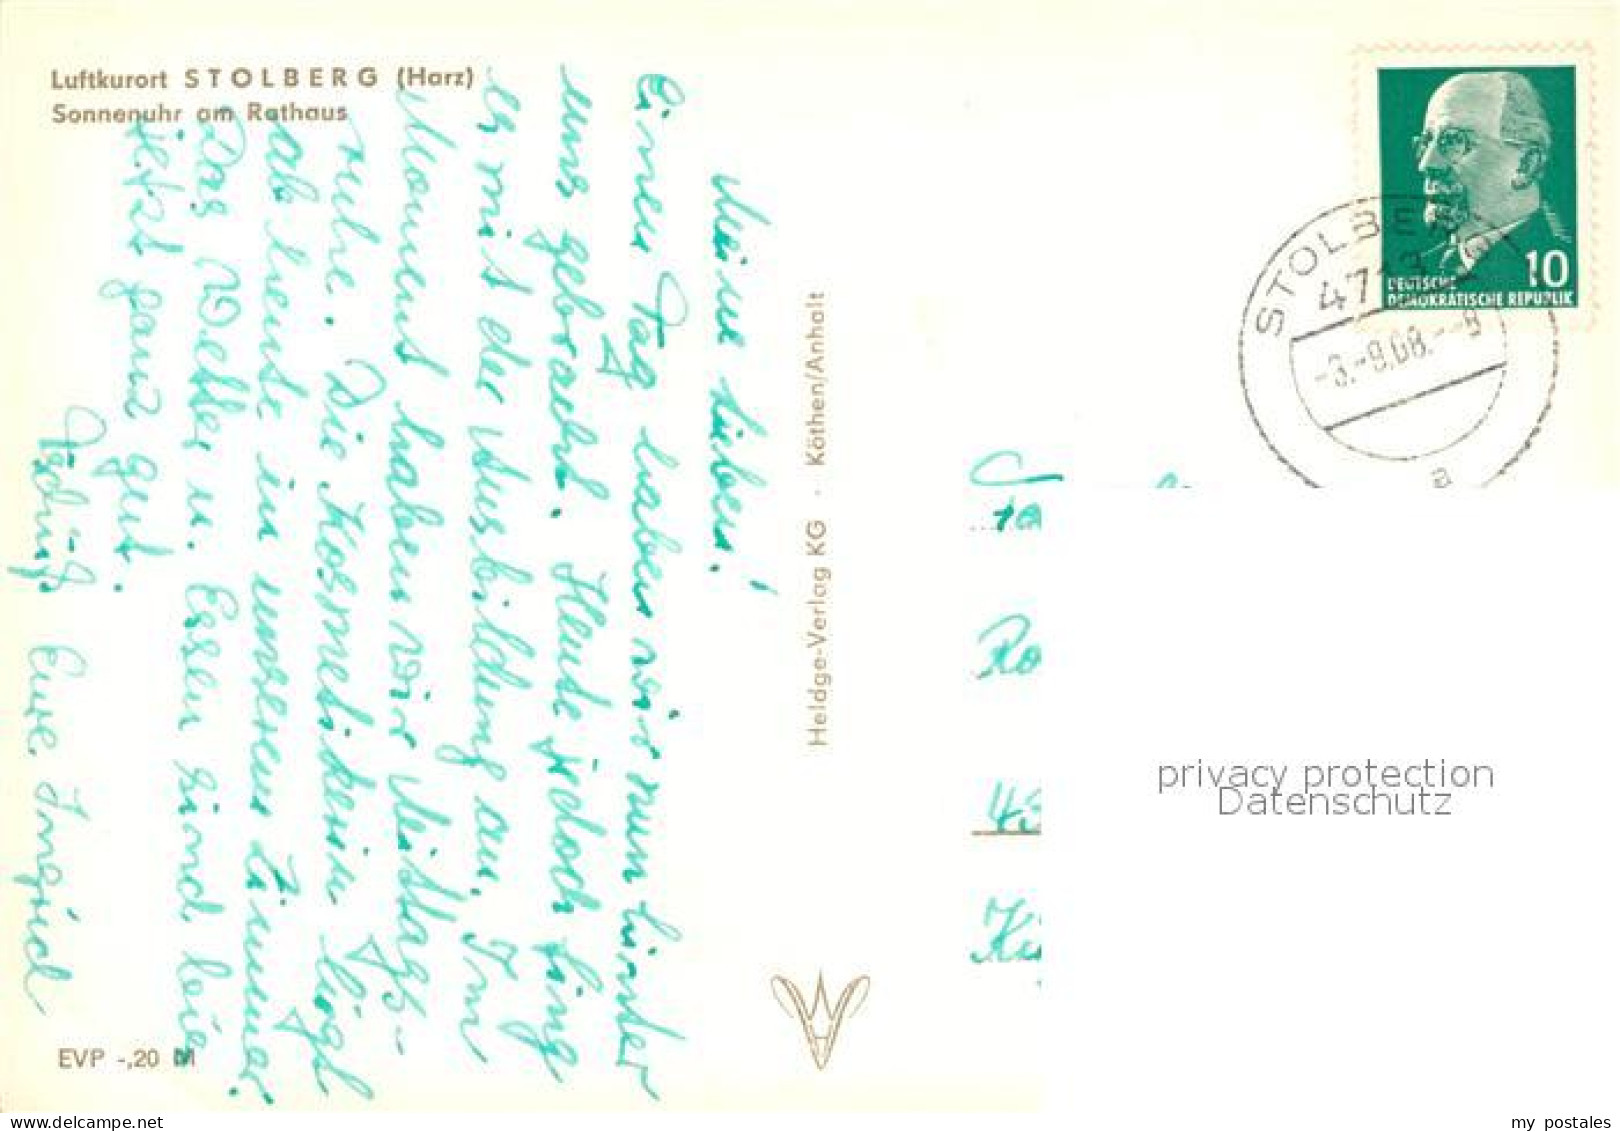 Luftkurort STOLBERG (Harz)
Sonnenuhr am Rathaus
Meine Lieben!
Einen Tag haben wir nun hinter
uns gebracht. Heute jedoch fing
es mit der Ausbildung an. Im
Moment haben wir Mittags-
ruhe. Die Kosmetikerin liegt
ab heute in unserem Zimmer.
Das Wetter u. Essen sind bis
jetzt ganz gut.
Tschüß Eure Ingrid
EVP -,20 M
Heldge-Verlag KG · Köthen/Anhalt
STOLBERG
-3.-9.68.--8
a
10
DEUTSCHE
DEMOKRATISCHE REPUBLIK
Ro
privacy protection
Datenschutz
my postales